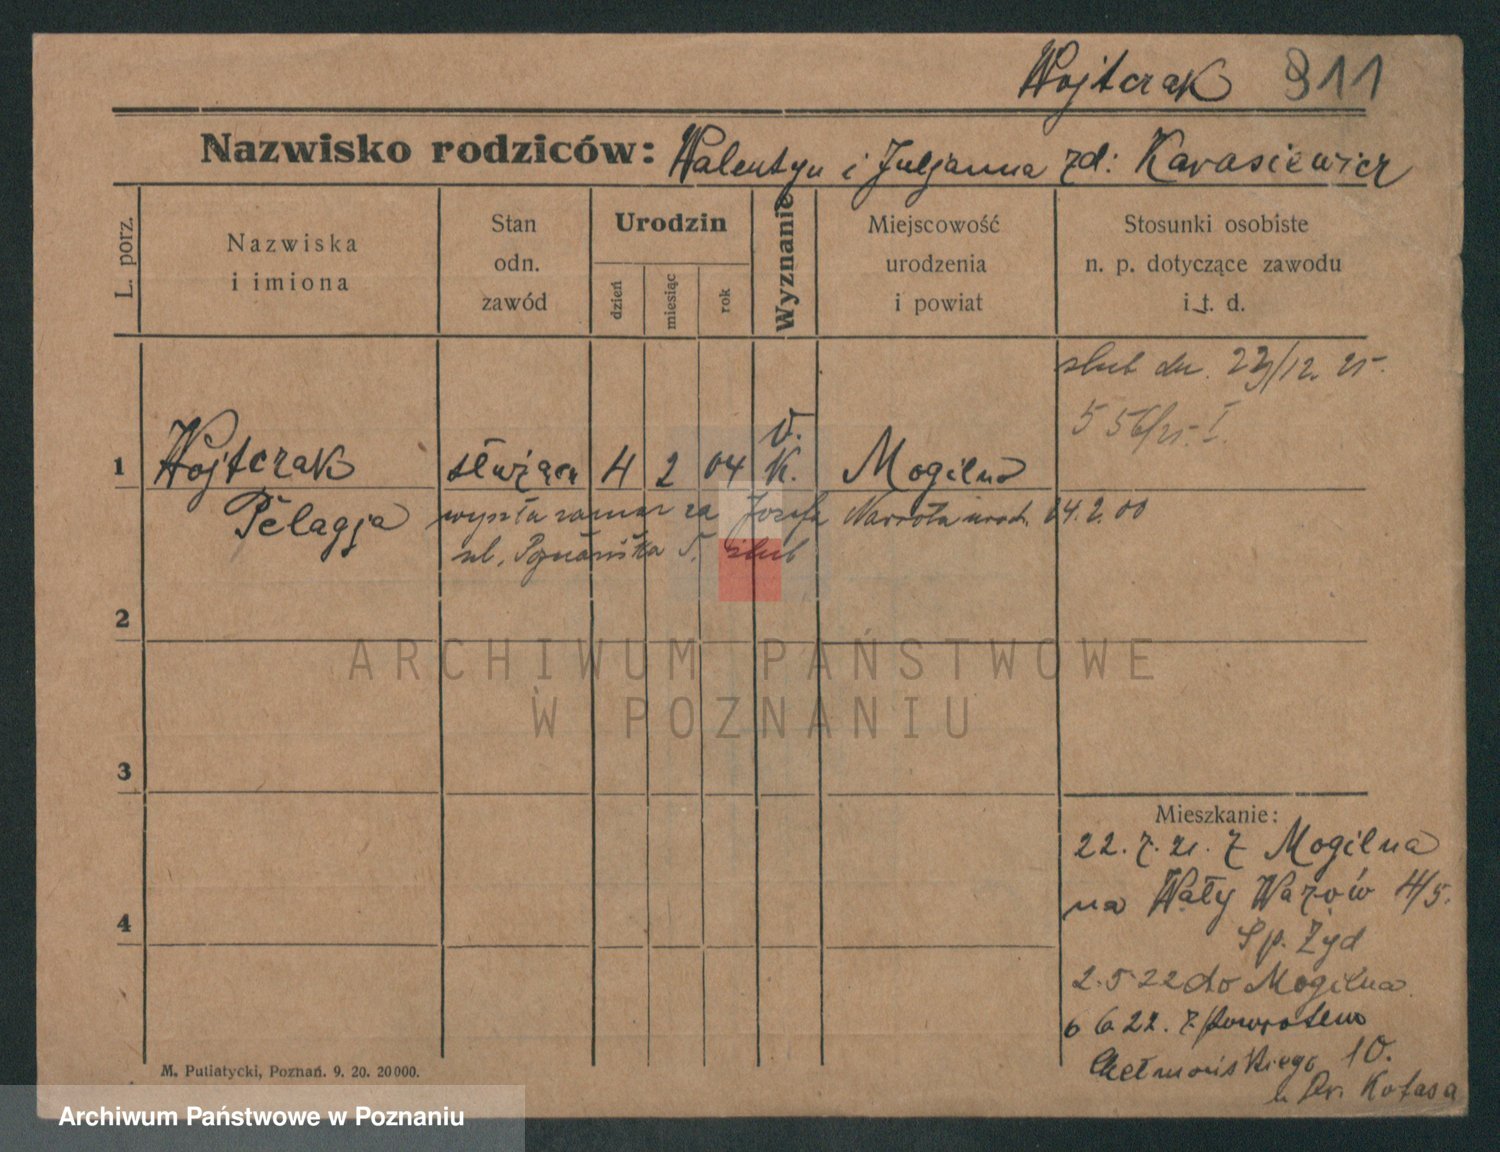 Wojtczak 911
Nazwisko rodziców: Walentyn i Juljanna zd: Karasiewicz
L. porz.
Nazwiska
i imiona
Stan
odn.
zawód
Urodzin
dzień
miesiąc
rok
Wyznanie
Miejscowość
urodzenia
i powiat
Stosunki osobiste
n. p. dotyczące zawodu
i t. d.
ślub dn. 23/12. 25.
1 Wojtczak służąca 4 2 04 r. K. Mogilno
Pelagja
wyszła zamąż za Józefa urodz. 24.2.00
ul. Poznańska ślub
2
3
4
Mieszkanie:
22.7.21. z Mogilna
na Wały Wazów 4/5.
Sp. Żyd
2.5 22 do Mogilna
6 6 22. z powrotem
Chełmońskiego 10.
Kotasa
M. Putiatycki, Poznań. 9. 20. 20000.
ARCHIWUM PAŃSTWOWE
W POZNANIU
Archiwum Państwowe w Poznaniu